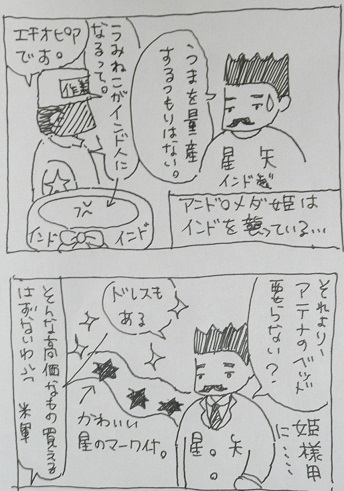 うまを量産
するつもりはない。
うみねこがインド人に
なるって。
エチオピア
です。
作業
星矢
インド製
インド
インド
アンドロメダ姫は
インドを襲っている…
それより、
アテナのベッド
要らない?
姫様用
に……
ドレスも
ある
星矢
かわいい
星のマーク付。
そんな高価なもの買える
はずないわ
米軍